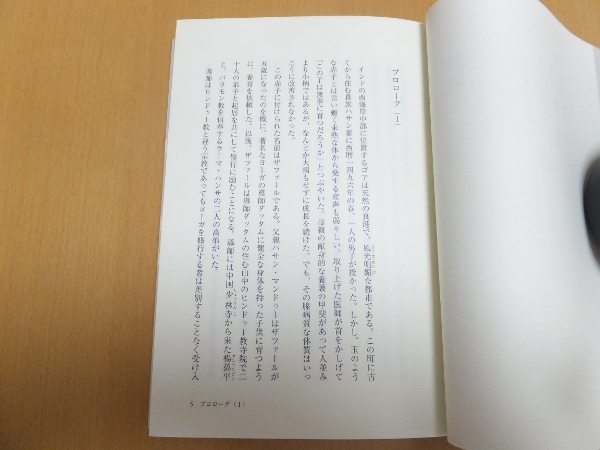 プロローグ（1）
インドの西海岸中部に位置するゴアは天然の良港で、風光明媚な都市である。この町に古
くから住む貴族ハサン家に西暦一四九六年の春、一人の男子が授かった。しかし、玉のよう
な赤子とは言い難く未熟な体から発する産声も弱々しい。取り上げた医師が首をかしげて
「この子は無事に育つだろうか」とつぶやいた。母親の献身的な養護の甲斐があって人並み
より小柄ではあるが、なんとか大病もせずに成長を続けた。でも、その腺病質な体質はいっ
こうに改善されなかった。
この赤子に付けられた名前はザファールである。父親ハサン・マンドゥーはザファールが
五歳になったのを機に、著名なヨーガの導師ダッタムに健全な身体を持った子供に育つよう
に、養育を依頼した。以後、ザファールは導師ダッタムの住む山中のヒンドゥー教寺院で二
十人の弟子と起居を共にして修行に励むことになる。導師には中国少林寺から来た楊孫平
と、バラモン教を信奉するラーマ・ハンサの二人の高弟がいた。
導師はヒンドゥー教と違う宗教であってもヨーガを修行する者は差別することなく受け入
5 プロローグ（1）